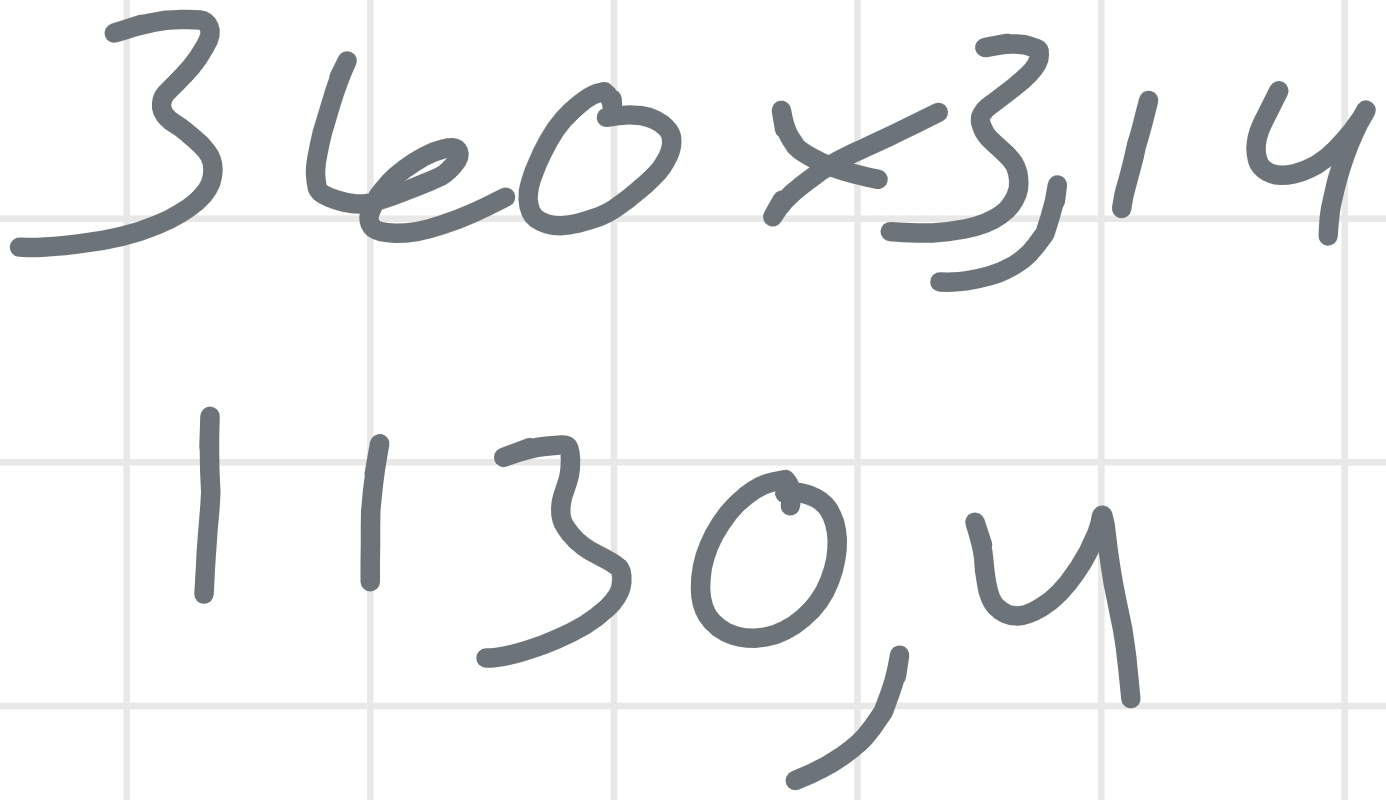 360 x 3,14
1130,4